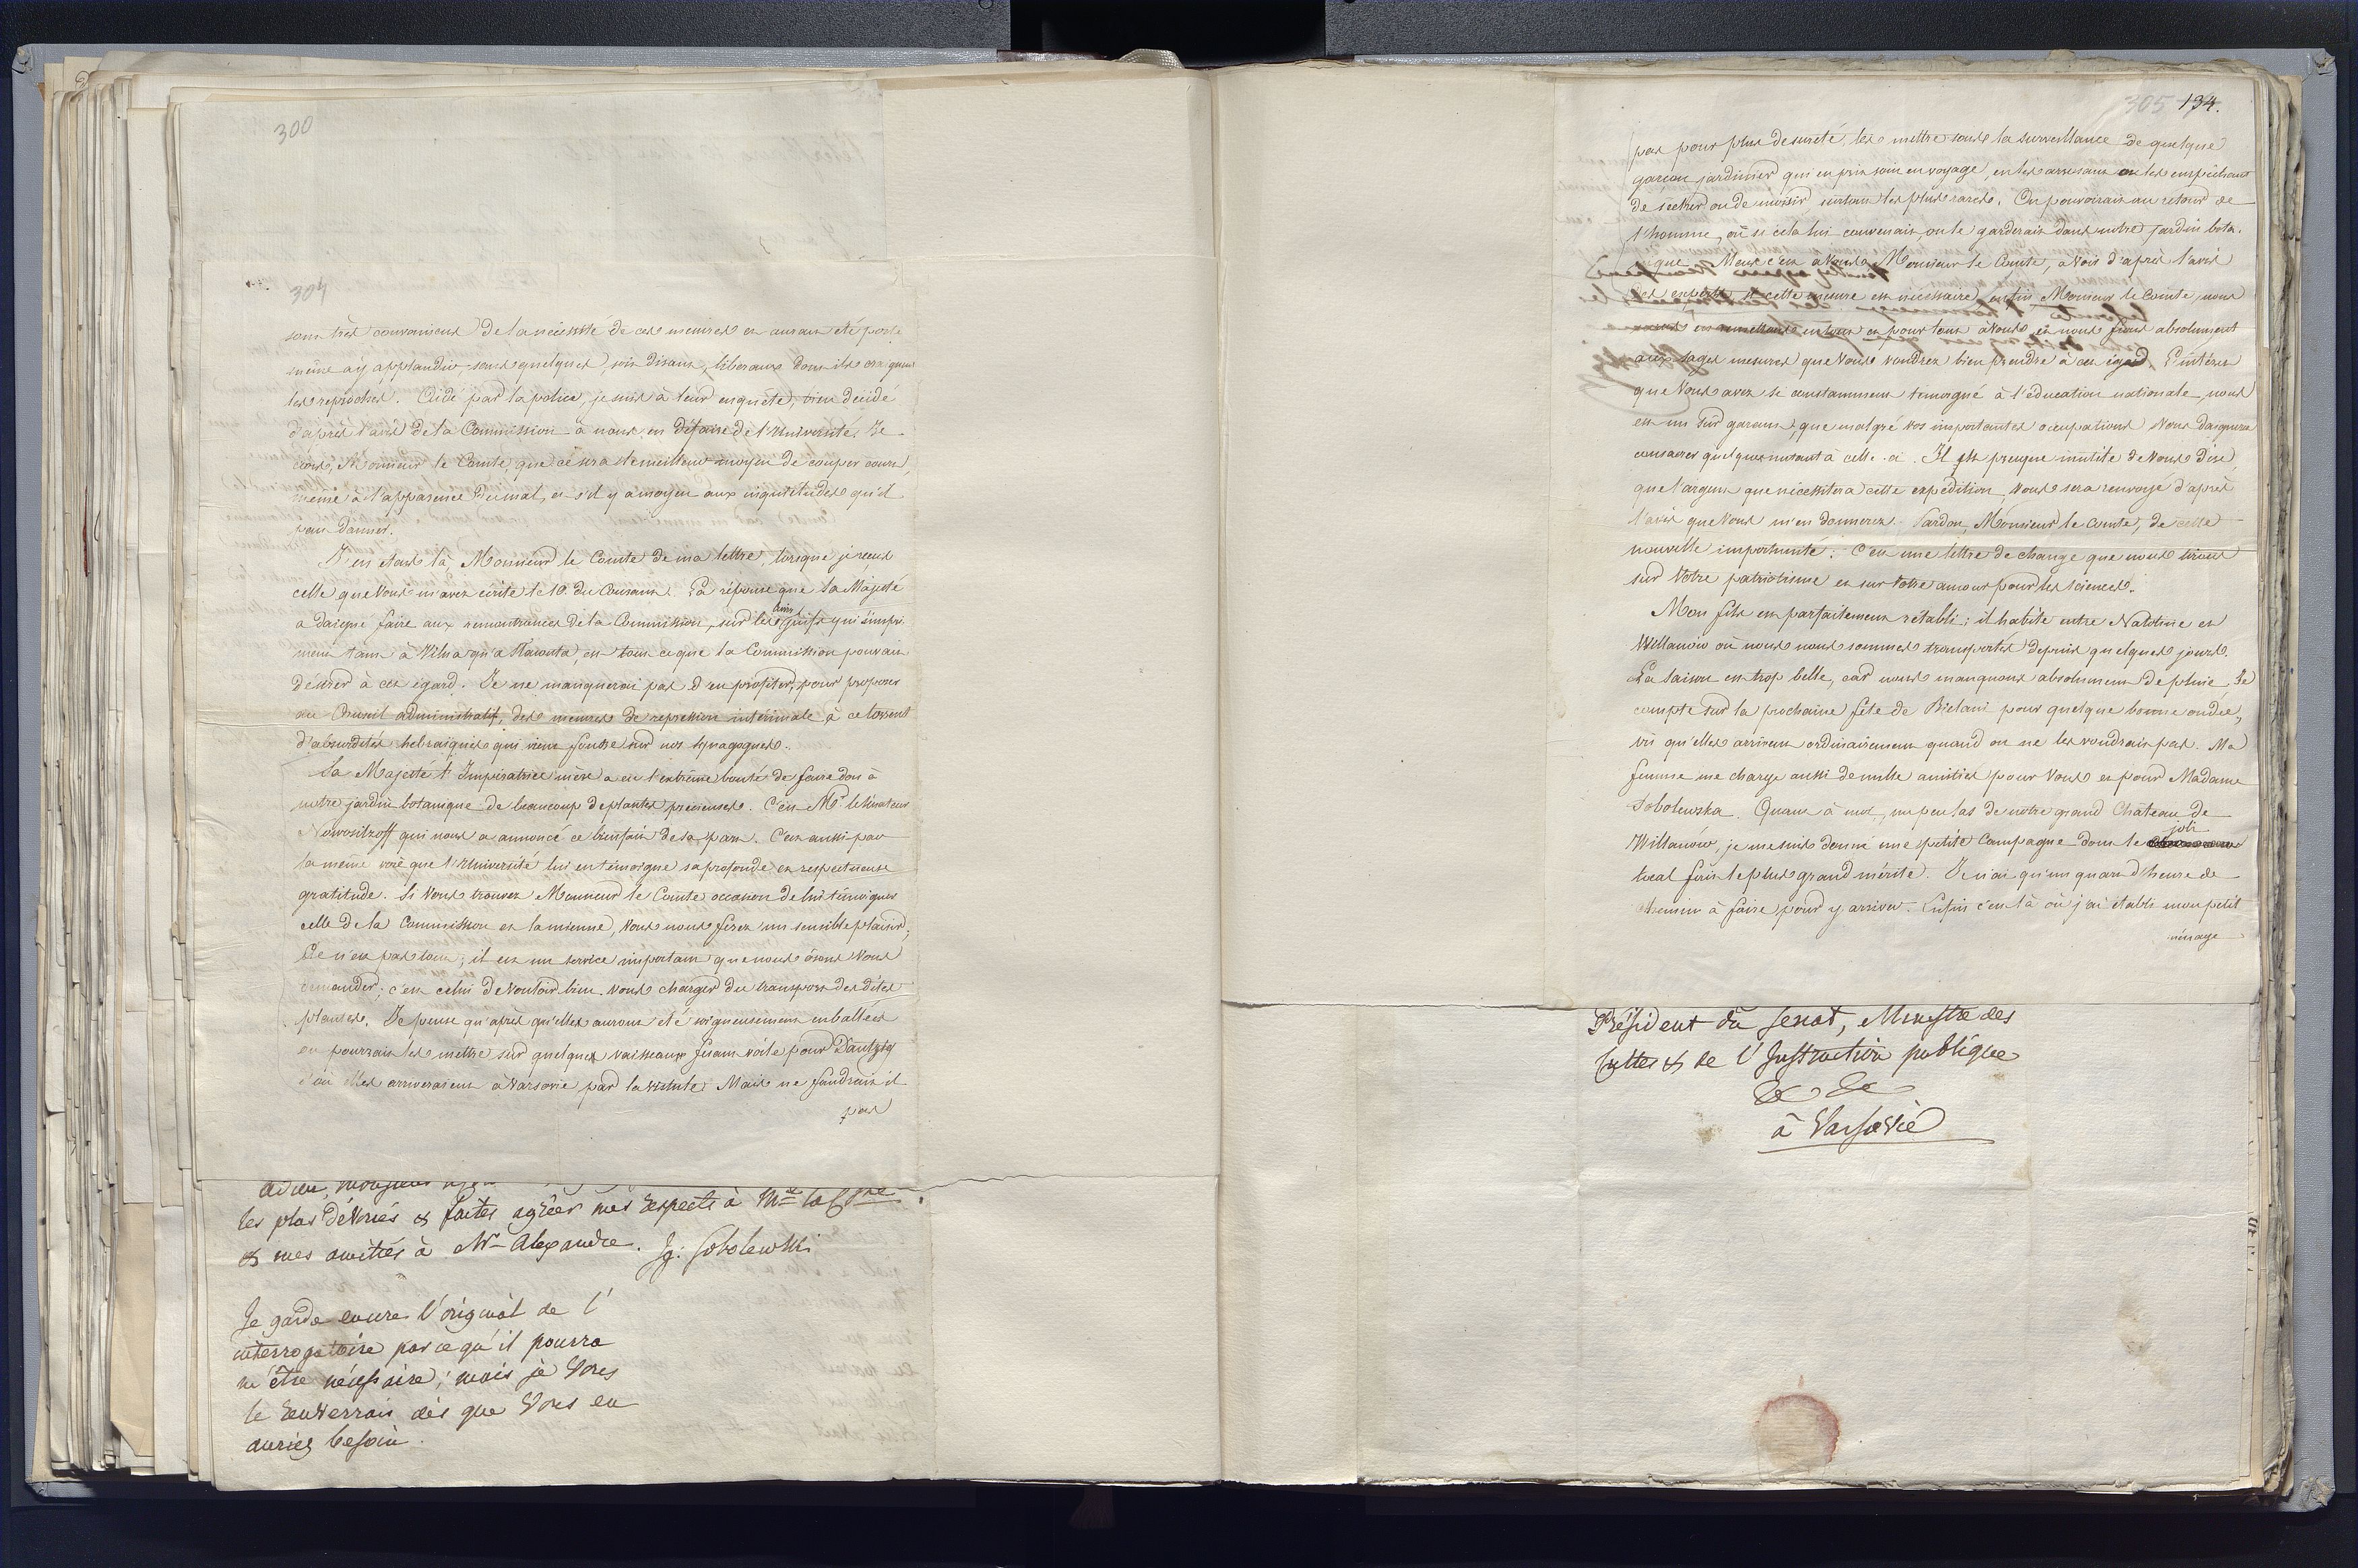 300
304
sont très convaincus de la nécessité de ces mesures et auront été porté
même à y applaudir sans quelques, soit disant, liberaux dont ils craignent
les reproches. Aidé par la police, je suis à leur enquete, bien décidé
d'après l'avis de la Commission à nous en défaire de l'Université. Je
crois, Monsieur le Comte, que ce sera le meilleur moyen de couper court,
même à l'apparence du mal, et s'il y a moyen aux inquietudes qu'il
peut donner.
J'en etois là, Monsieur le Comte de ma lettre, lorsque je recus
celle que Vous m'avez écrite le 10. du Courant. La réponse que Sa Majesté
a daigné faire aux remontrances de la Commission, sur les livres juifs qui s'impri-
ment tant à Vilna qu'a Hawonta, est tout ce que la Commission pouvait
désirer à cet égard. Je ne manquerai pas d'en profiter, pour proposer
au Conseil administratif, des mesures de repression intérimale à ce torrent
d'absurdités hebraïques qui vient fondre sur nos synagogues.
Sa Majesté l'Impératrice mère a eu l'extrème bonté de faire don à
notre jardin botanique de beaucoup de plantes precieuses. C'est Mr. le Sénateur
Nowosiltzoff qui nous a annoncé ce bienfait de sa part. C'est aussi par
la même voie que l'Université lui en témoigne sa profonde et respectueuse
gratitude. Si Vous trouvez Monsieur le Comte occasion de lui témoigner
celle de la Commission et la mienne, Vous nous ferez un sensible plaisir;
Ce n'est pas tout; il est un service important que nous ôsons Vous
demander; c'est celui de Vouloir bien Vous charger du transport des dites
plantes. Je pense qu'après qu'elles auront eté soigneusement emballées
on pourrait les mettre sur quelques vaisseaux fesant voile pour Dantzig
d'où elles arriveraient à Varsovie par la Vistule. Mais ne faudrait-il
pas
adieu, Monsieur
les plus dévoués & faites agréer mes respects à Mme la Ctsse
& mes amitiés à Mr Alexandre. Ig: Sobolewski
Je garde encore l'original de l'
interrogatoire parcequ'il pourra
m'être nécessaire; mais je Vous
le renverrais dès que Vous en
auriez besoin.
305 134.
pas pour plus de sureté, les mettre sous la surveillance de quelque
garçon jardinier qui en prit soin en voyage, en les arrosant ou les empêchant
de sécher ou de moisir surtout les plus rares. On pouvoirait au retour de
l'homme, où si cela lui convenait, on le garderait dans notre jardin bota-
nique. Mais c'est à Vous, Monsieur le Comte, à Voir d'après l'avis
des experts si cette mesure est nécessaire, enfin Monsieur le Comte, nous
nous en remettons en tout et pour tout à Vous, et nous fions absolument
aux sages mesures que Vous voudrez bien prendre à cet égard. L'intérêt
que Vous avez si constamment temoigné à l'éducation nationale, nous
est un sûr garant, que malgré vos importantes occupations Vous daignerez
consacrer quelques instants à celle-ci. Il est presque inutile de Vous dire,
que l'argent que nécessitera cette expédition, Vous sera renvoyé d'après
l'avis que Vous m'en donnerez. Pardon, Monsieur le Comte, de cette
nouvelle importunité: C'est une lettre de change que nous tirons
sur Votre patriotisme et sur Votre amour pour les sciences.
Mon fils est parfaitement rétabli; il habite entre Natoline et
Willanów où nous nous sommes transportés depuis quelques jours.
La saison est trop belle, car nous manquons absolument de pluie. Je
compte sur la prochaine fête de Bielani pour quelque bonne ondée,
vû qu'elles arrivent ordinairement quand on ne les voudrait pas. Ma
femme me charge aussi de mille amitiés pour Vous et pour Madame
Sobolewska. Quant à moi, un peu las de notre grand Château de
Willanów, je me suis donné une petite Campagne dont le joli
local fait le plus grand mérite. Je n'ai qu'un quart d'heure de
chemin à faire pour y arriver. Enfin c'est là où j'ai établi mon petit
ménage
Président du Senat, Ministre des
Cultes & de l'Instruction publique
&c &c
à Varsovie